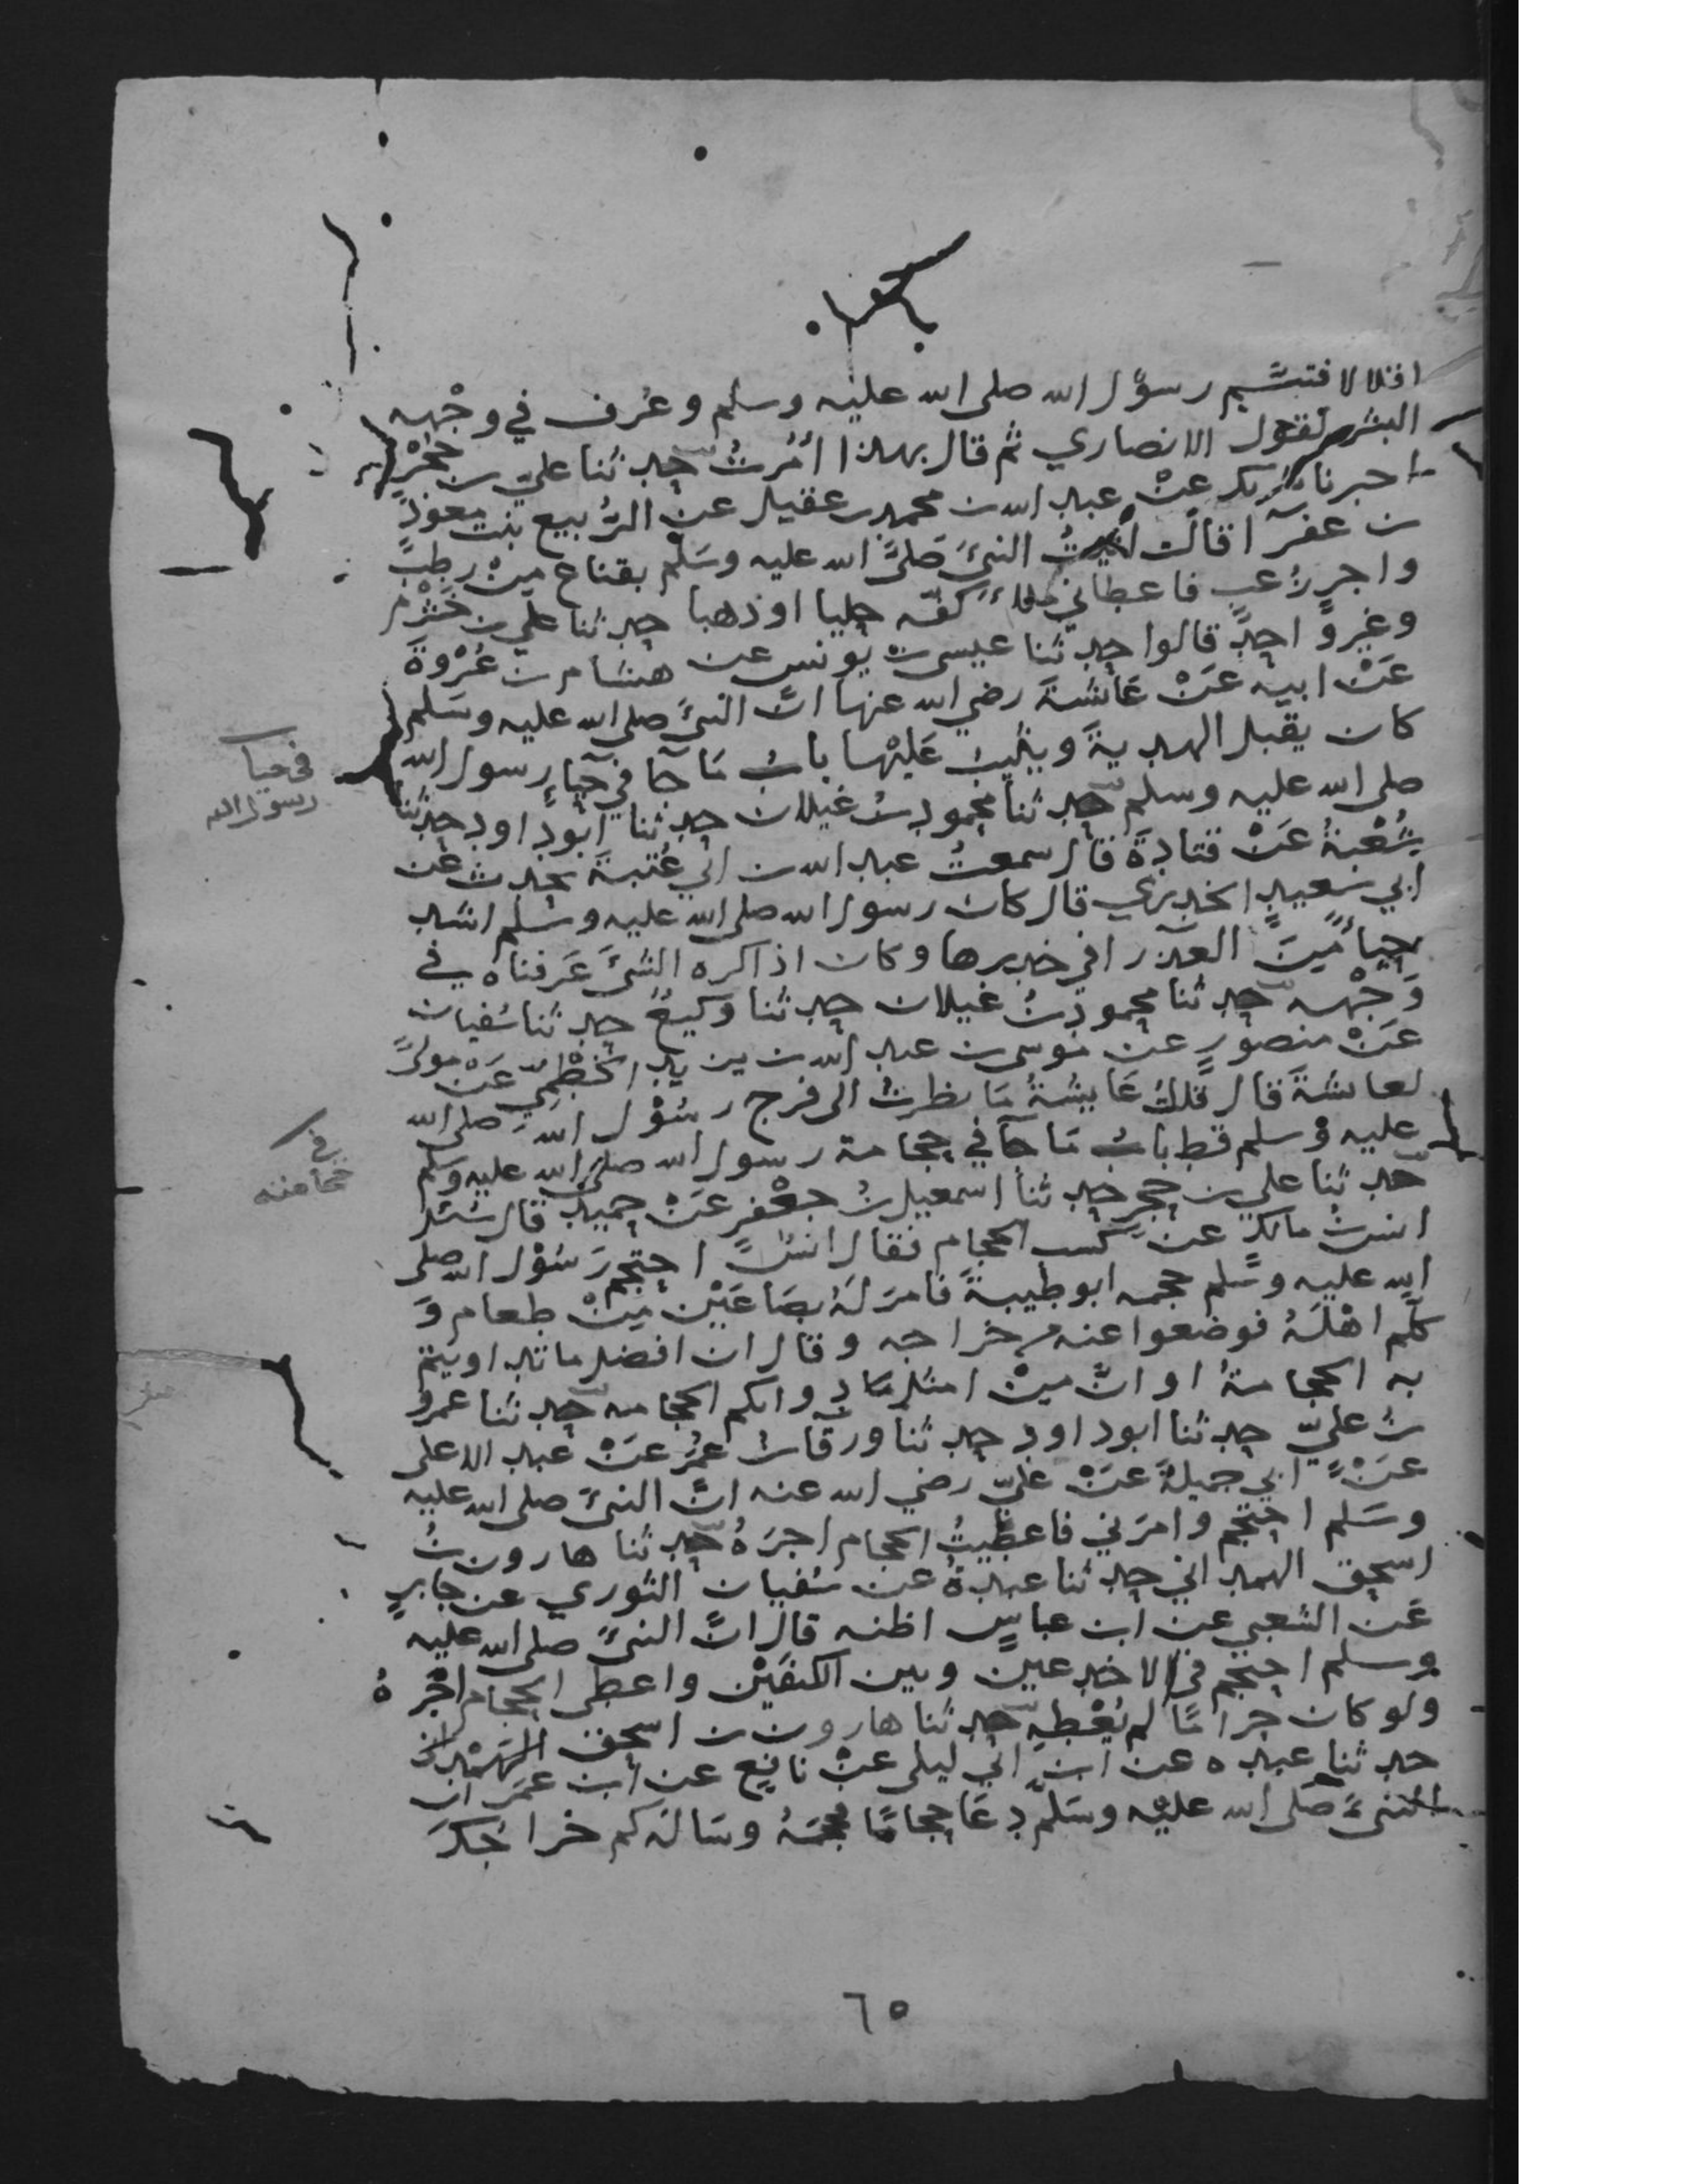 اقلالا فتبسّم رسوُل الله صلى الله عليه وسلم وعُرف في وجْهه
البشر لقول الانصاري ثم قال بهذا اُمُرتُ حدثنا عليّ بن حُجْرٍ
اخبرنا شريك عنْ عبد الله بن محمد بن عقيل عن الرُبيع بنت معوذ
بن عفرآ قالت اتيتُ النبيَّ صَلىَّ الله عليه وسَلّم بقناح مِنْ رطبٍ
واجرٍ زُغبٍ فاعطاني ملاءَ كفّه حليا اوذهبا حدثنا عليّ بن خشْرم
وغيروُ احدٍ قالوا حدّثنا عيسى بن يونس عن هشام بن عُرْوةَ
عَنْ ابيه عَنْ عَائشةَ رضي الله عنها انَّ النبيَّ صلى الله عليه وسَلم
كان يقبل الهديةَ ويثيبُ عَليْها بابُ مَا جآ في حيآءِ رسول الله
صلى الله عليه وسلم حدثنا محمود بنُ غيلان حدثنا ابوداود حدثنا
شُعْبةُ عَنْ قتادةَ قال سمعتُ عبد الله بن ابي عُتبةَ يحدث عن
ابي سَعيدٍ الخدري قال كان رسول الله صلى الله عليه وسلم اشد
حيآءً مِنَ العذرآ في خدرها وكان اذا كره الشيَّ عَرفناه في
وَجْهه حدثنا محمود بنُ غيلان حدثنا وكيعٌ حدثنا سُفيان
عَنْ منصورٍ عن موسى بن عبد الله بن يزيد الخطْميّ عَنْ مولىً
لعائشةَ قال قالتْ عَايشةُ مَا نظرتُ الى فرج رسُوْل الله صلى الله
عليه وْسلم قط بابُ مَا جآ في حجامة رسول الله صلى الله عليه وسلم
حدثنا علي بن حجرٍ حدثنا اسمعيل بنُ جعْفرٍ عَنْ حميدٍ قال سُئل
انس بنُ مالكٍ عن كسب الحجام فقال انسٌ احتجم رَسُوْل الله صلى
الله عليه وسَلم حجمه ابوطيبةَ فامرَ لَهُ بصَاعَيْن مِنْ طعام وَ
كلّم اهْلَهُ فوضعوا عنه من خراجه وقال ان افضل ما تداويتم
به الحجامةُ او انَّ مِنْ امثل مَا دوائكم الحجامه حدثنا عمرو
بنُ عليّ حدثنا ابوداود حدثنا ورقآ بنُ عمرُ عَنْ عبد الاعلى
عَنْ ابي جميلةَ عَنْ عليّ رضي الله عنه انَّ النبيَّ صلى الله عليه
وسَلم احتجم وامرَني فاعطيتُ الحجام اجرَهُ حدثنا هارون بنُ
اسحق الهمداني حدثنا عبدةُ عن سُفيان الثوري عن جابرٍ
عَن الشعبي عن ابن عباسٍ اظنه قال انَّ النبيَّ صلى الله عليه
وسلم احتجم في الاخدعين وبين الكتفَيْن واعطى الحجام اجْرهُ
ولو كان حرامًا لم يُعْطهِ حدثنا هارون بن اسحق الهمْداني
حدثنا عبده عن ابن ابي ليلى عنْ نافعٍ عن ابن عمَر ان
النبيَّ صَلى الله عليه وسَلّم دعَا حجامًا فحجمَهُ وسَالَه كم خراجُكَ
في حيا
رسول الله
في
حجامته
٦٥